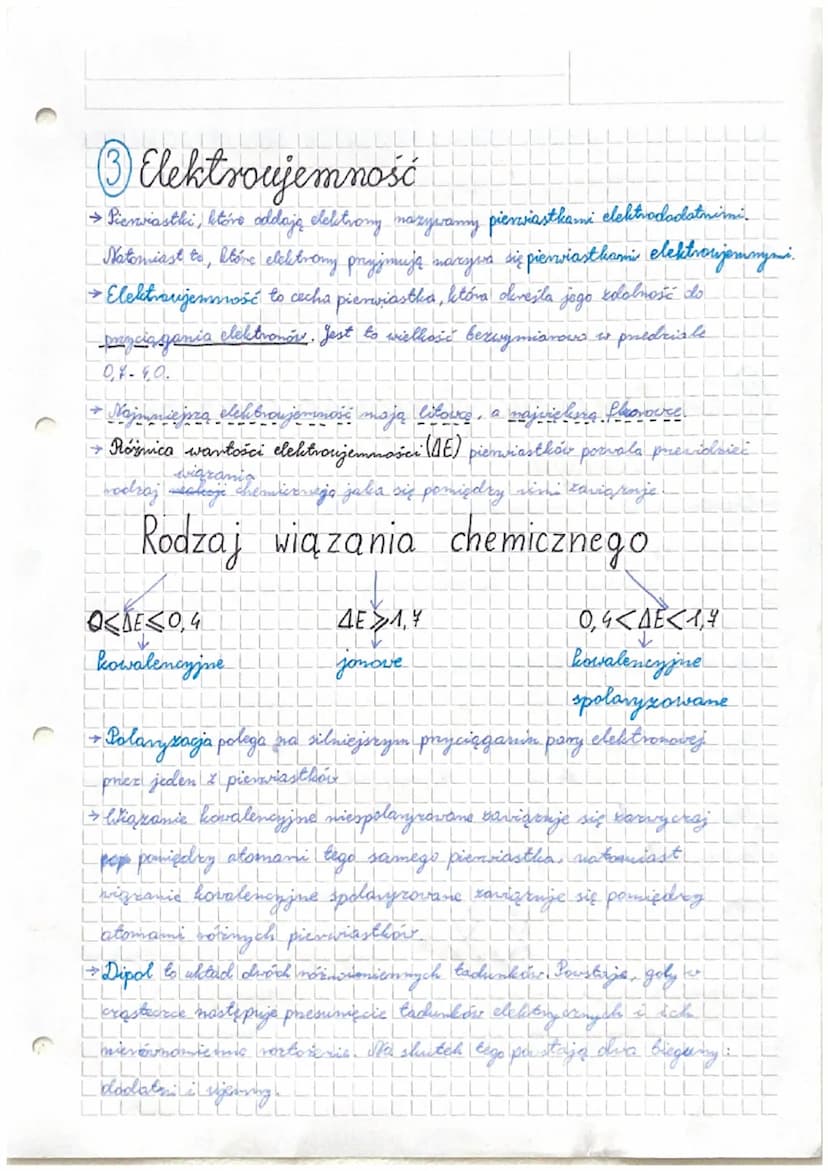 ③ Elektroujemność
→ Pierwiastki, które oddają elektrony nazywamy pierwiastkami elektrododatnimi.
Natomiast te, które elektrony przyjmują nazywa się pierwiastkami elektroujemnymi.
→ Elektroujemność to cecha pierwiastka, która określa jego zdolność do
przyciągania elektronów. Jest to wielkość bezwymiarowa w przedziale
0,7-4,0.
→ Najmniejszą elektroujemność mają litowce, a największą fluorowce.
→ Różnica wartości elektroujemności (ΔE) pierwiastków pozwala przewidzieć
wiązania
rodzaj reakcji chemicznego jaka się pomiędzy nimi zawiązuje.
Rodzaj wiązania chemicznego
0≤ΔE≤0,4 ΔE≥1,7 0,4<ΔE<1,7
kowalencyjne jonowe kowalencyjne
spolaryzowane
→ Polaryzacja polega na silniejszym przyciąganiu pary elektronowej
przez jeden z pierwiastków
→ Wiązanie kowalencyjne niespolaryzowane zawiązuje się zazwyczaj
pomiędzy atomami tego samego pierwiastka, natomiast
wiązanie kowalencyjne spolaryzowane zawiązuje się pomiędzy
atomami różnych pierwiastków.
→ Dipol to układ dwóch różnoimiennych ładunków. Powstaje, gdy w
cząsteczce następuje przesunięcie ładunków elektrycznych i ich
nierównomierne rozłożenie. Na skutek tego powstają dwa bieguny:
dodatni i ujemny.